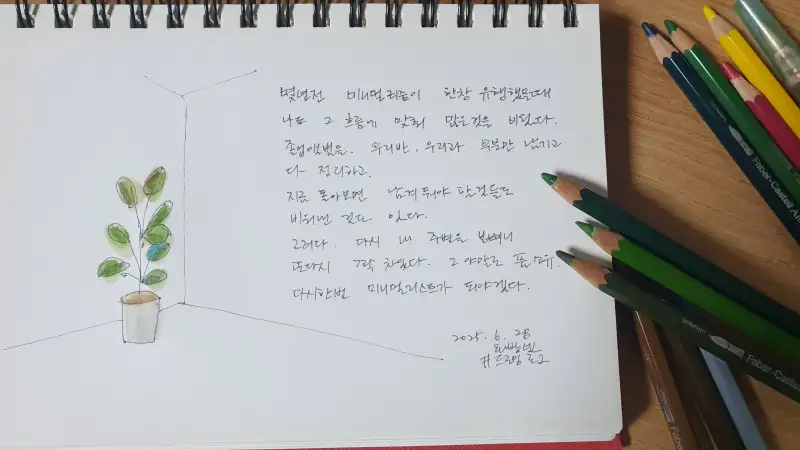 몇년전 미니멀리즘이 한창 유행했을때
나도 그 흐름에 맞춰 많은것을 비웠다.
졸업앨범을. 우리반, 우리과 부분만 남기고
다 정리하고.
지금 돌아보면 남겨둬야 할것들도
비워낸 것도 있다.
그러다. 다시 내 주변을 보니
또다시 가득 차있다. 그 야말로 풀소유.
다시한번 미니멀리스트가 되야겠다.
2025. 6. 28
#드로잉
Faber-Castell
Faber-Castell
Faber-Castell
Faber